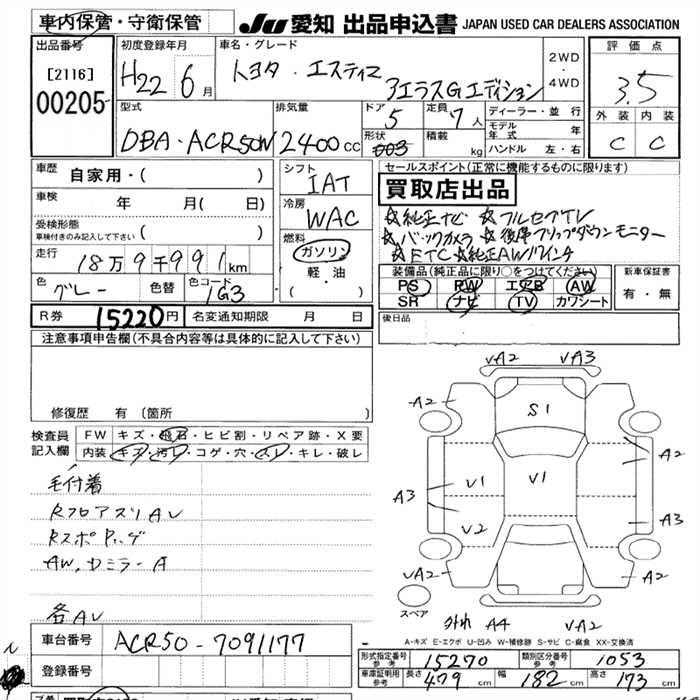 車内保管・守衛保管
JU 愛知 出品申込書 JAPAN USED CAR DEALERS ASSOCIATION
出品番号
[2116]
00205
初度登録年月
H22 6月
車名・グレード
トヨタ・エスティマ
アエラスGエディション
2WD・4WD
評価点
3.5
外装 内装
C C
型式
DBA・ACR50W
排気量
2400cc
ドア
5
形状
003
定員
7人
積載 kg
ディーラー・並行
モデル年式 年
ハンドル 左・右
車歴
自家用・( )
車検
年 月( 日)
受検形態
車検付きのみ記入して下さい
( )
走行
18万9千991km
色
グレー
色替
色コード
1G3
シフト
IAT
冷房
WAC
燃料
ガソリン
軽・油
( )
セールスポイント(正常に機能するものに限ります)
買取店出品
☆純正ナビ ☆フルセグTV
☆バックカメラ ☆後席フリップダウンモニター
☆ETC ☆純正AW17インチ
装備品(純正品に限り○をつけてください)
PS PW エアB AW
SR ナビ TV カワシート
新車保証書
有・無
R券 15220円
名変通知期限 月 日
後日品
注意事項申告欄(不具合内容等は具体的に記入して下さい)
修復歴 有(箇所 )
検査員記入欄
FW キズ・飛石・ヒビ割・リペア跡・X要
内装 キズ・汚レ・コゲ・穴・スレ・キレ・破レ
毛付着
RフロアスリAU
AW,ドミラーA
各AU
VA2 VA3
A2
S1
A2
V1
V1
A2
A3
V2
A3
VA2
A2
スペア
外れ A4
VA2
A-キズ E-エクボ U-凹み W-補修跡 S-サビ C-腐食 XX-交換済
車台番号
ACR50-7091177
登録番号
形式指定番号
参考
15270
類別区分番号
参考
1053
車庫証明用
参考
長さ 479cm 幅 182cm 高さ 173cm